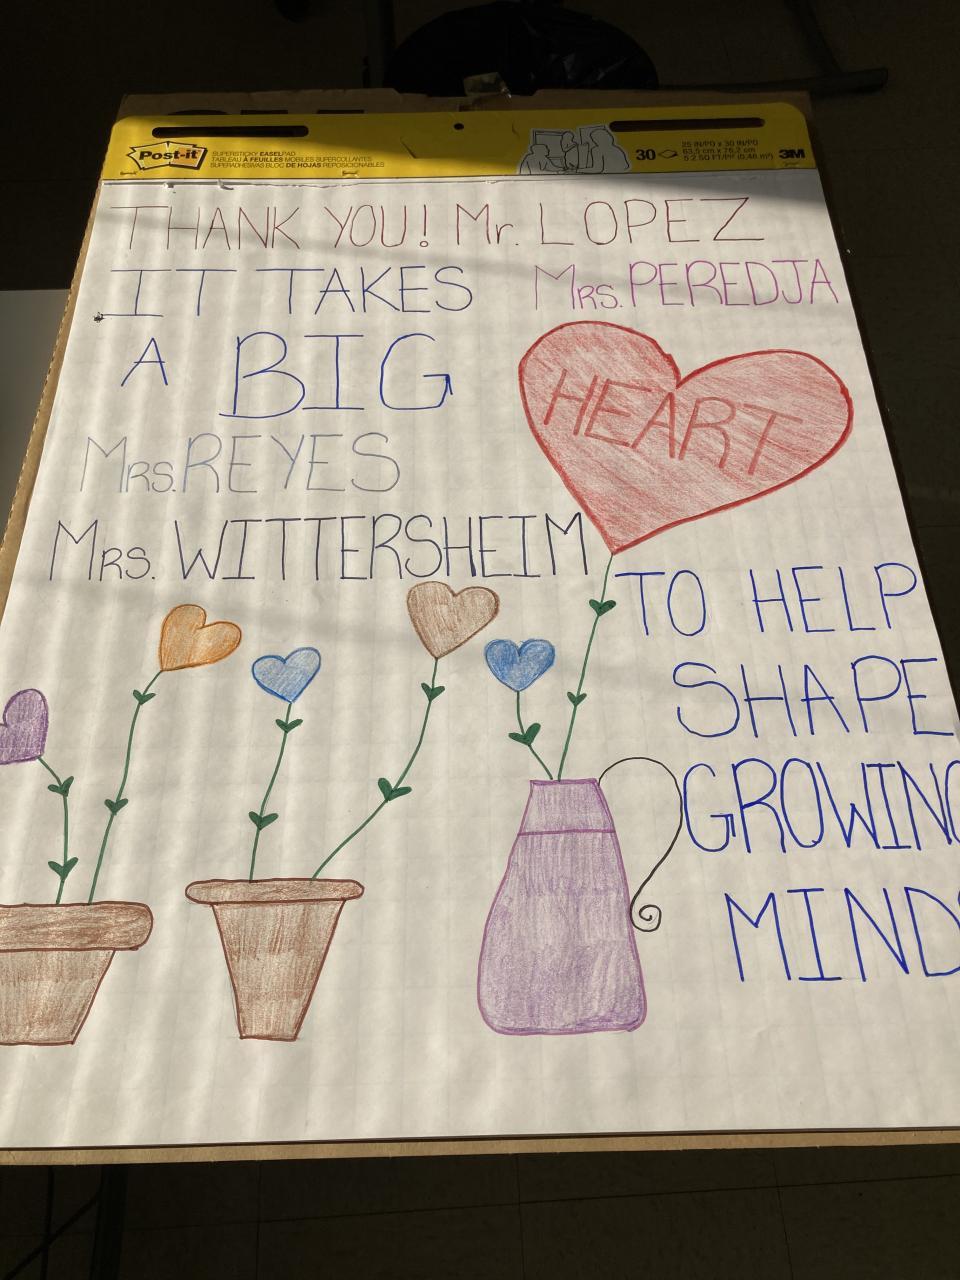 Post-it
SUPERSTICKY EASEL PAD
TABLEAU À FEUILLES MOBILES SUPERCOLLANTES
SUPERADHESIVAS BLOC DE HOJAS REPOSICIONABLES
30
25 IN/PO x 30 IN/PO
63,5 cm x 76,2 cm
5.2 SQ FT/PI² (0,48 m²)
3M
THANK YOU! Mr. LOPEZ
IT TAKES
Mrs. PEREDJA
A BIG
HEART
Mrs. REYES
Mrs. WITTERSHEIM
TO HELP
SHAPE
GROWING
MINDS